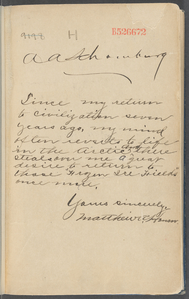 E526672
H
A A Schomburg
Since my return
to civilization seven
years ago, my mind
often reverts to life
in the Arctic, and there
steals over me a great
desire to return to
those frozen ice fields
once more.
Yours sincerely
Matthew A Henson